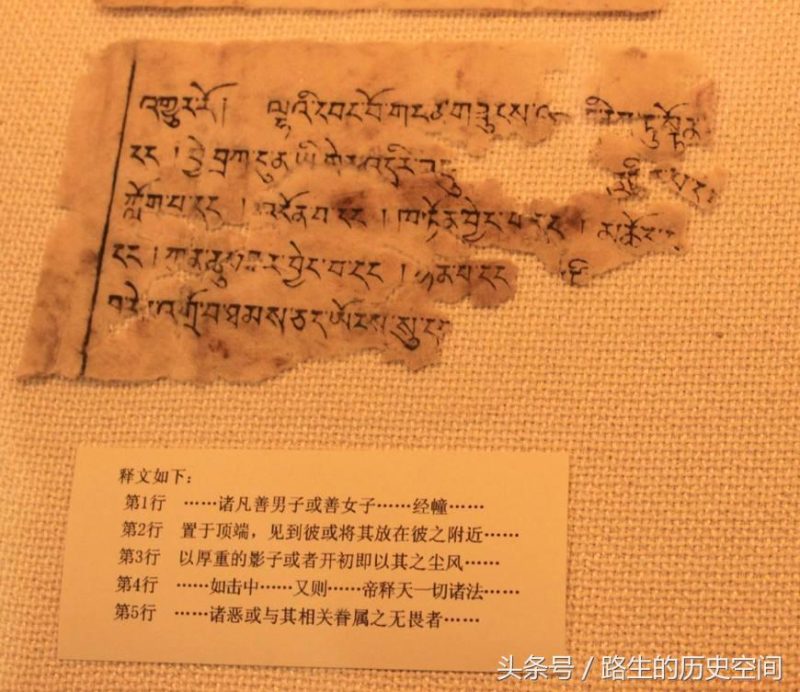 འགྱུར་རོ། ལྷའི་དབང་པོ་གང་ གཟུངས་
དང་ ། ཡི་གེར་འདྲིར་
ཀློག་པ་དང་ །འདོན་པ་དང་ །ཁ་ཏོན་བྱེད་པ་དང་ །
དང་ །ཀུན་ཆུབ་པར་བྱེད་པ་དང་ །ཉན་པ་དང་
འགྲོ་བ་ཐམས་ཅད་ཡོངས་སུ་
释文如下：
第1行 ……诸凡善男子或善女子……经幢……
第2行 置于顶端，见到彼或将其放在彼之附近……
第3行 以厚重的影子或者开初即以其之尘风……
第4行 ……如击中……又则……帝释天一切诸法……
第5行 ……诸恶或与其相关眷属之无畏者……
头条号 / 路生的历史空间